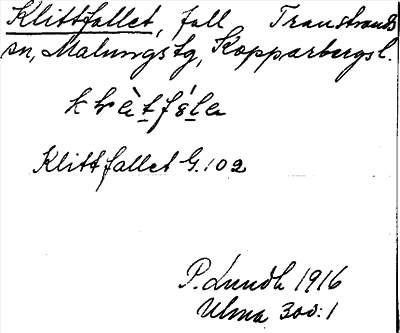 Klittfallet, fall Transtrands
sn, Malungs tg, Kopparbergs l.
Klittfallet G. 102
P. Lundh 1916
Ulma 300:1